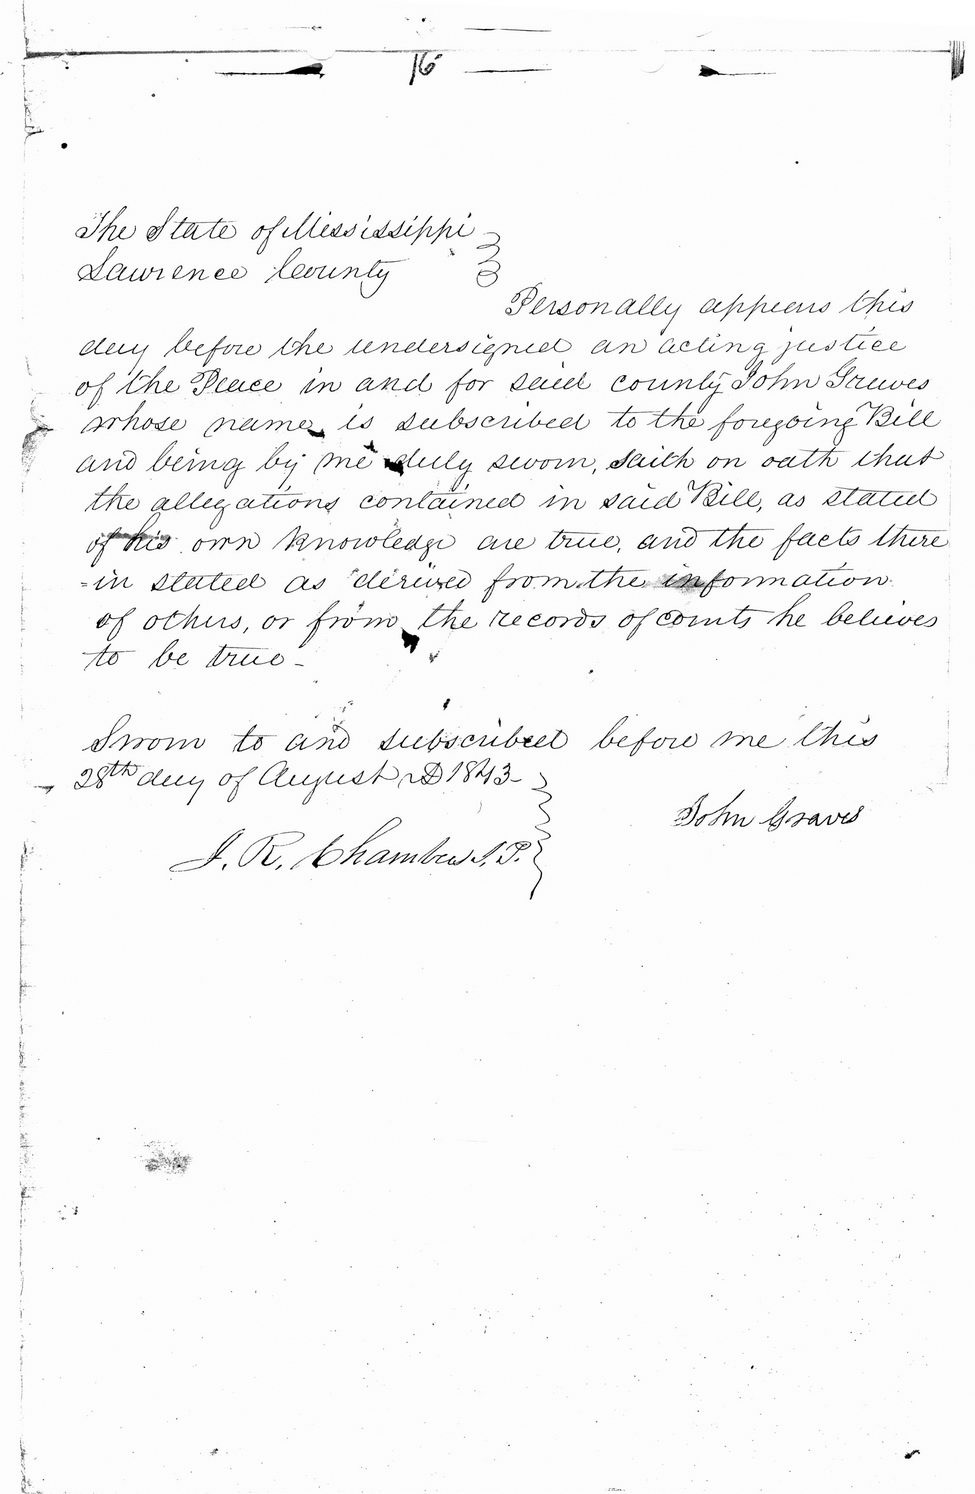 16
The State of Mississippi
Lawrence County
Personally appears this
day before the undersigned an acting justice
of the Peace in and for said county John Graves
whose name is subscribed to the foregoing Bill
and being by me duly sworn, saith on oath that
the allegations contained in said Bill, as stated
of his own knowledge are true, and the facts there
=in stated as derived from the information
of others, or from the records of courts he believes
to be true -
Sworn to and subscribed before me this
28th day of August AD 1843
John Graves
J. R. Chambers J.P.